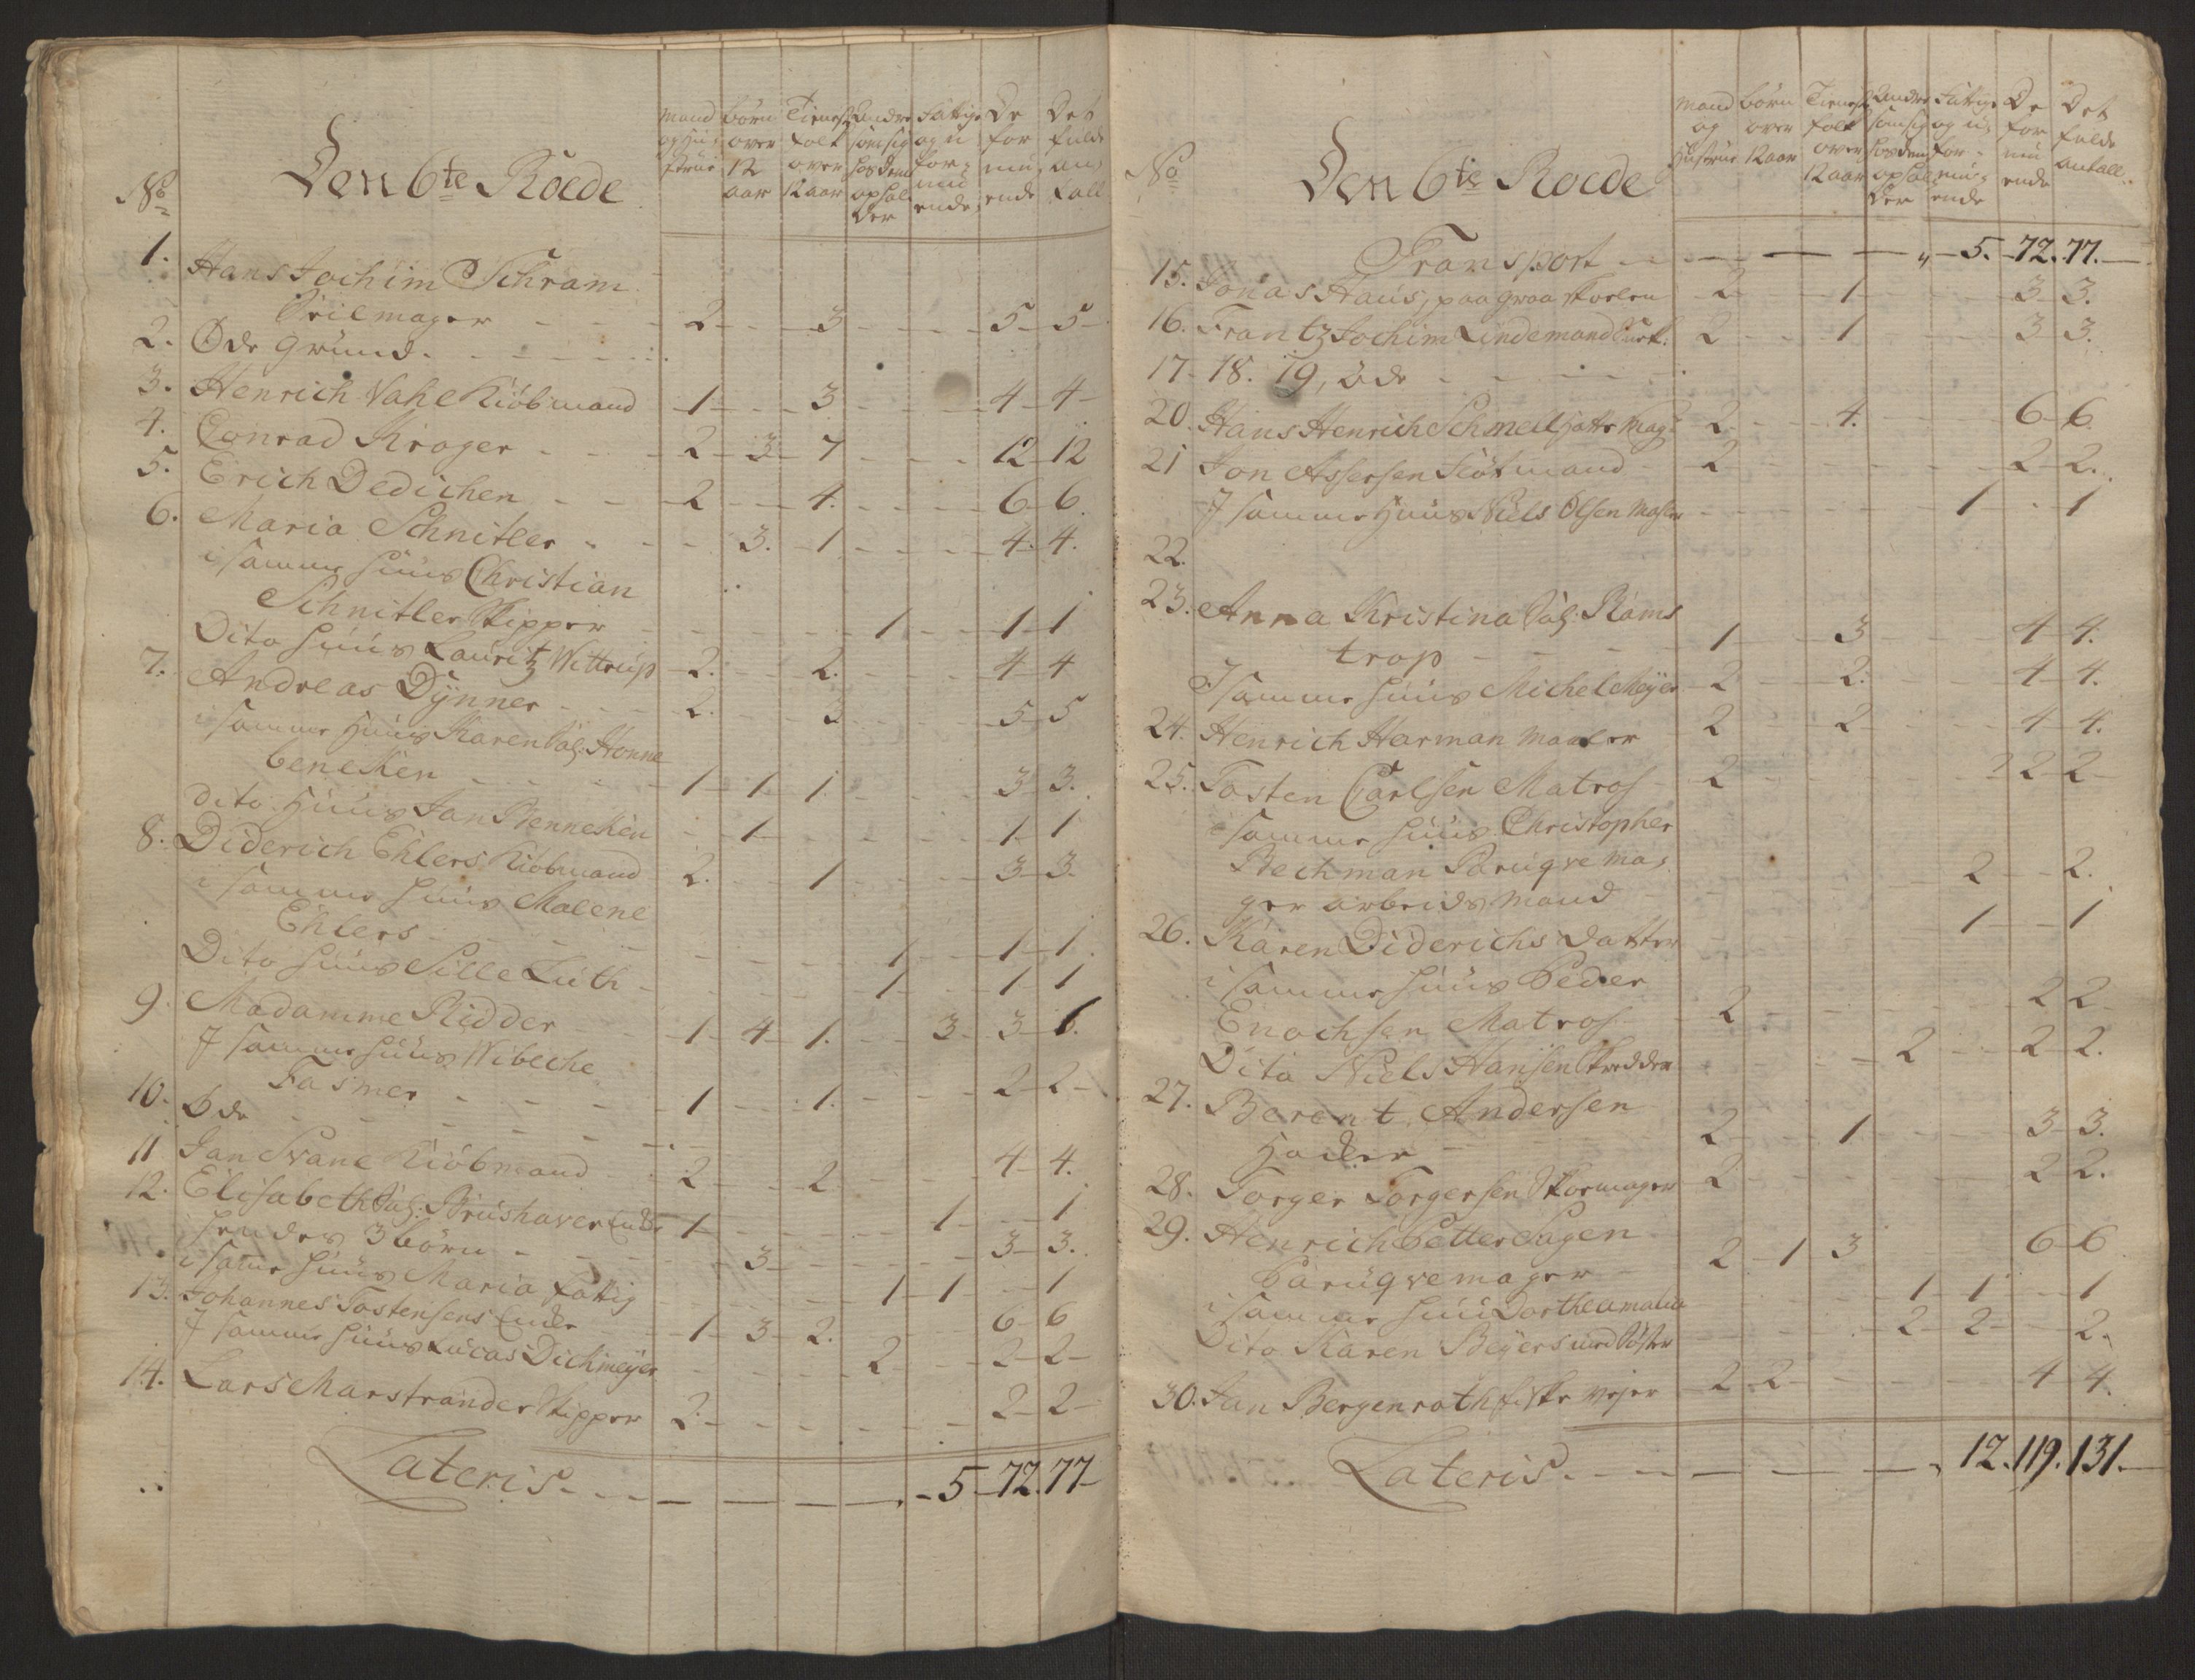 No
Den 6te Roede
mand og Hustrue
børn over 12 aar
Tieneste folk over 12 aar
Andre som sig hos dem opholder
Fattige og uformuende
De formuende
Det fulde antall
1. Hans Jochim Schram
Seilmager - - - 2 - - 3 - - - 5 - 5 -
2. Øde Grund.
3. Henrich Vahl Kiöbmand 1 - - 3 - - - 4 - 4 -
4. Conrad Kroger - - - 2 - 3 - 7 - - - 12 - 12
5. Erich Dedichen - - 2 - - 4. - - - 6 - 6.
6. Maria Schnitler - - - 3. - 1 - - - 4. 4.
i samme huus Christian
Schnitler Skipper - - - - - 1 - - 1 - 1
Dito huus Lauritz Wittrup 2. - - 2. - - - 4 - 4
7. Andreas Dynner - - - 2. - - 3 - - - 5 - 5
i samme Huus Karen Sal: Honne
beneken - - - 1 - 1 - 1 - - - 3 - 3.
dito Huus Jan Benneken - - 1 - - - - 1 - 1
8. Diderich Ehlers Kiöbmand 2. - - 1 - - - 3 - 3.
i samme huus Malene
Ehlers - - - - - - 1 - - 1 - 1.
Dito huus Sille Luth - - - - - 1 - - 1 - 1
9. Madamme Ridder - 1 - 4 - 1. - 3 - 3 - 6.
J samme huus Wibeche
Fasmer - - - 1 - - 1. - - - 2 - 2 -
10. Øde - - - - - -
11 Jan Svane Kiöbmand 2 - - 2 - - - 4 - 4.
12. Elisabeth Sal: Brushaver Enke 1 - - - - - 1 - - 1
hendes 3 börn - - - 3 - - - - 3 - 3.
i samme huus Maria fattig - - - - 1 - 1 - - 1
13. Johannes Tostensens Enke 1 - 3 - 2. - - - 6 - 6
J samme huus Lucas Dichmeyer - - - - 2 - - 2 - 2 -
14. Lars Marstrander Skipper 2. - - - - - - 2 - 2 -
Lateris - - - - - - - 5 - 72. 77 -
No
Den 6te Roede
mand og Hustrue
børn over 12 aar
Tieneste folk over 12 aar
Andre som sig hos dem opholder
Fattige og uformuende
De formuende
Det fulde antall.
Transport - - - - - - 5. - 72. 77. -
15. Jonas Haus, paa graa skoelen 2 - - 1 - - - 3 - 3.
16. Frantz Jochim Lindemand 2 - - 1 - - - 3 3.
17. 18. 19, öde - - - -
20. Hans Henrich Schmell hatte Mag: 2 - - 4. - - - 6 - 6.
21 Jon Assersen Flötmand - 2 - - - - - - 2 - 2.
J samme Huus Niels Olsen - - - - - 1 - - 1
22.
23. Anna Kristina Sal: Rams
trop - - - 1 - - 3 - - - 4 - 4.
J samme huus Michel Meyer 2 - - 2. - - - 4 - 4.
24. Henrich Harman Maaler 2 - - 2 - - - 4 - 4.
25. Tosten Carlsen Matros - 2 - - - - - - 2 - 2 -
i samme huus Christopher
Bechman Paruqve ma,
ger arbeids mand - - - - - 2 - - 2.
26. Karen Diderichs datter - - - - - 1 - - 1
i samme huus Peder
Enochsen Matros - 2 - - - - - - 2 2 -
Dito Niels Hansen Skredder - - - - 2 - - 2 - 2.
27. Berent Andersen
Høcker - 2 - - 1 - - - 3 - 3.
28. Torger Torgersen Skoemager 2 - - - - - - 2 - 2.
29. Henrich Petter Hagen
Paruqvemager - 2 - 1 3 - - - 6 - 6
i samme huus Dorthe amalia - - - - 1 - 1 - - 1
Dito Karen Beyers med Søster - - - - 2 - 2 - - 2.
30. Jan Bergenroth fiske vejer - 2 2 - - - - - 4 4.
Lateris. - - - - - - - 12. 119. 131. -